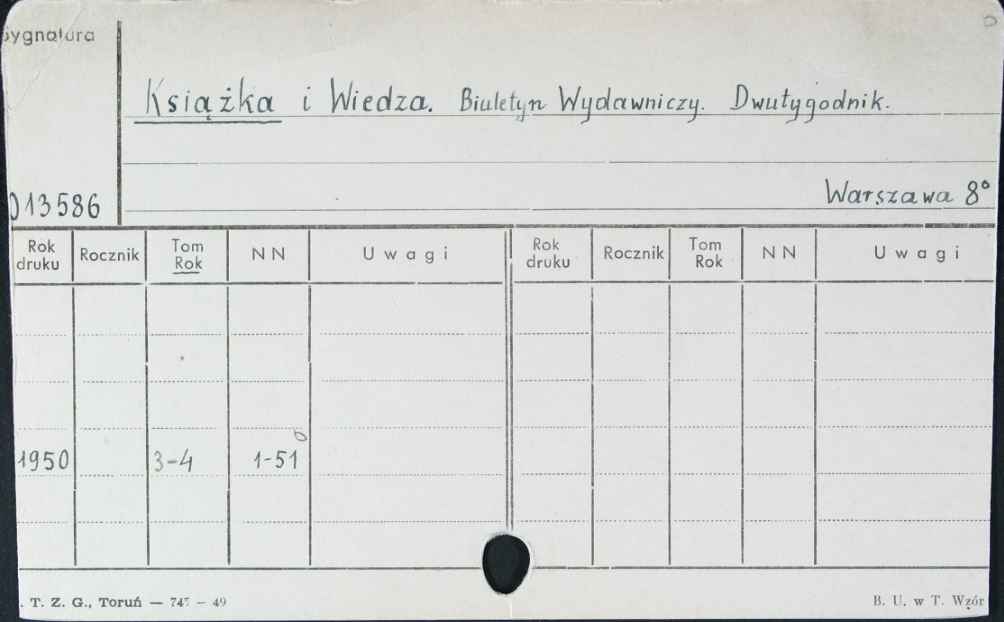 Sygnatura
Książka i Wiedza. Biuletyn Wydawniczy. Dwutygodnik.
013586
Warszawa 8°
Rok druku Rocznik Tom Rok NN Uwagi Rok druku Rocznik Tom Rok NN Uwagi
1950 3-4 1-51
. T. Z. G., Toruń — 747 — 49 B. U. w T. Wzór